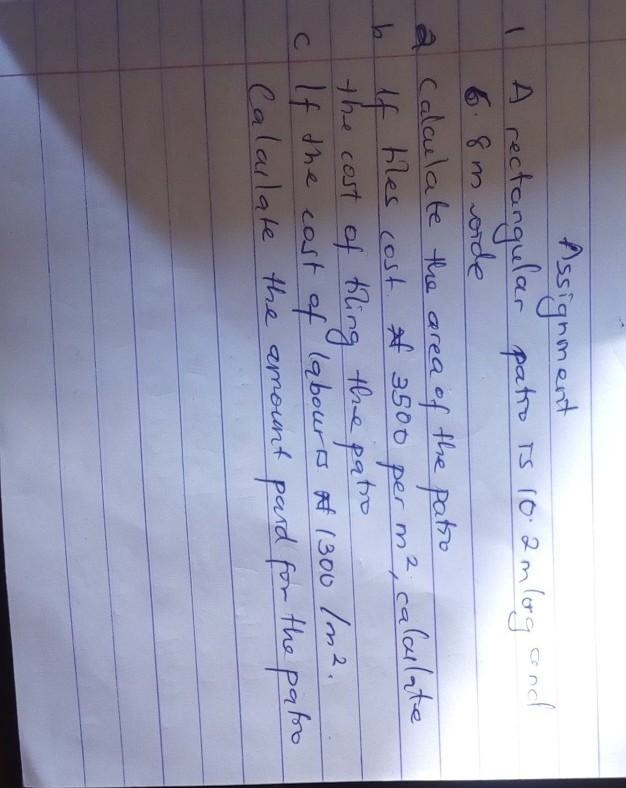 Assignment
1 A rectangular patio is 10.2m long and
6.8m wide
a Calculate the area of the patio
b If tiles cost ₦3500 per m², calculate
the cost of tiling the patio
c If the cost of labour is ₦1300/m².
Calculate the amount paid for the patio